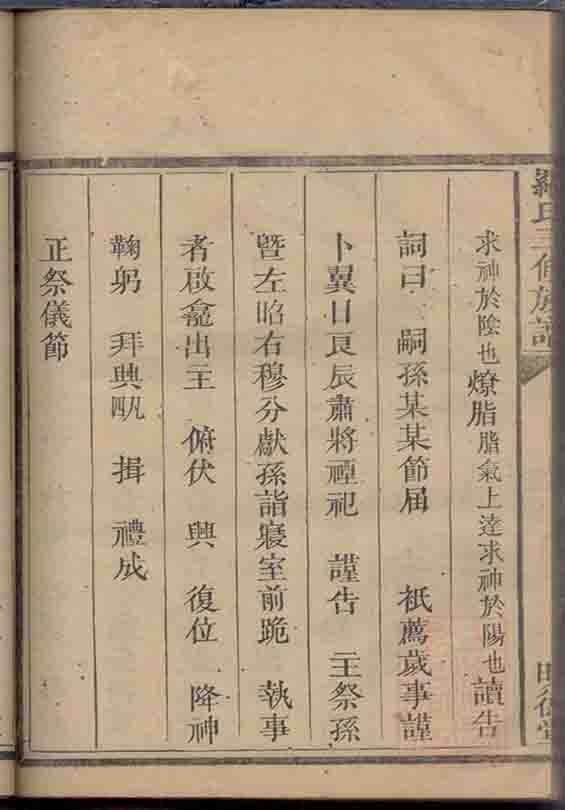 羅氏三修族譜
求神於陰也燎脂脂氣上達求神於陽也讀告
詞曰 嗣孫某某節届 祇薦歲事謹
卜翼日良辰肅將禋祀 謹告 主祭孫
暨左昭右穆分獻孫詣寢室前跪 執事
者啟龕出主 俯伏 興 復位 降神
鞠躬 拜興凡四 揖 禮成
正祭儀節